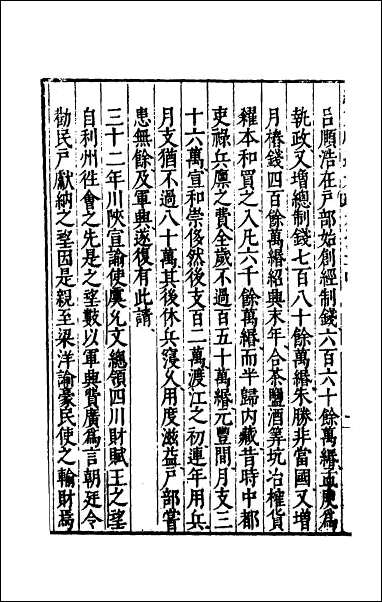 呂順浩在戶部始創經制錢六百六十餘萬緡孟庾爲
執政又增總制錢七百八十餘萬緡朱勝非當國又增
月樁錢四百餘萬緡紹興末年合茶鹽酒筭坑冶榷貨
糴本和買之入凡六千餘萬緡而半歸内藏昔時中都
吏祿兵廪之費全歲不過百五十萬緡元豐間月支三
十六萬宣和崇侈然後支百二萬渡江之初連年用兵
月支猶不過八十萬其後休兵寖久用度滋益戶部嘗
患無餘及軍興遂復有此請
三十二年川陝宣諭使虞允文總領四川財賦王之望
自利州徃會之先是之望數以軍興費廣爲言朝廷令
勸民戶獻納之望因是親至梁洋諭豪民使之輸財焉